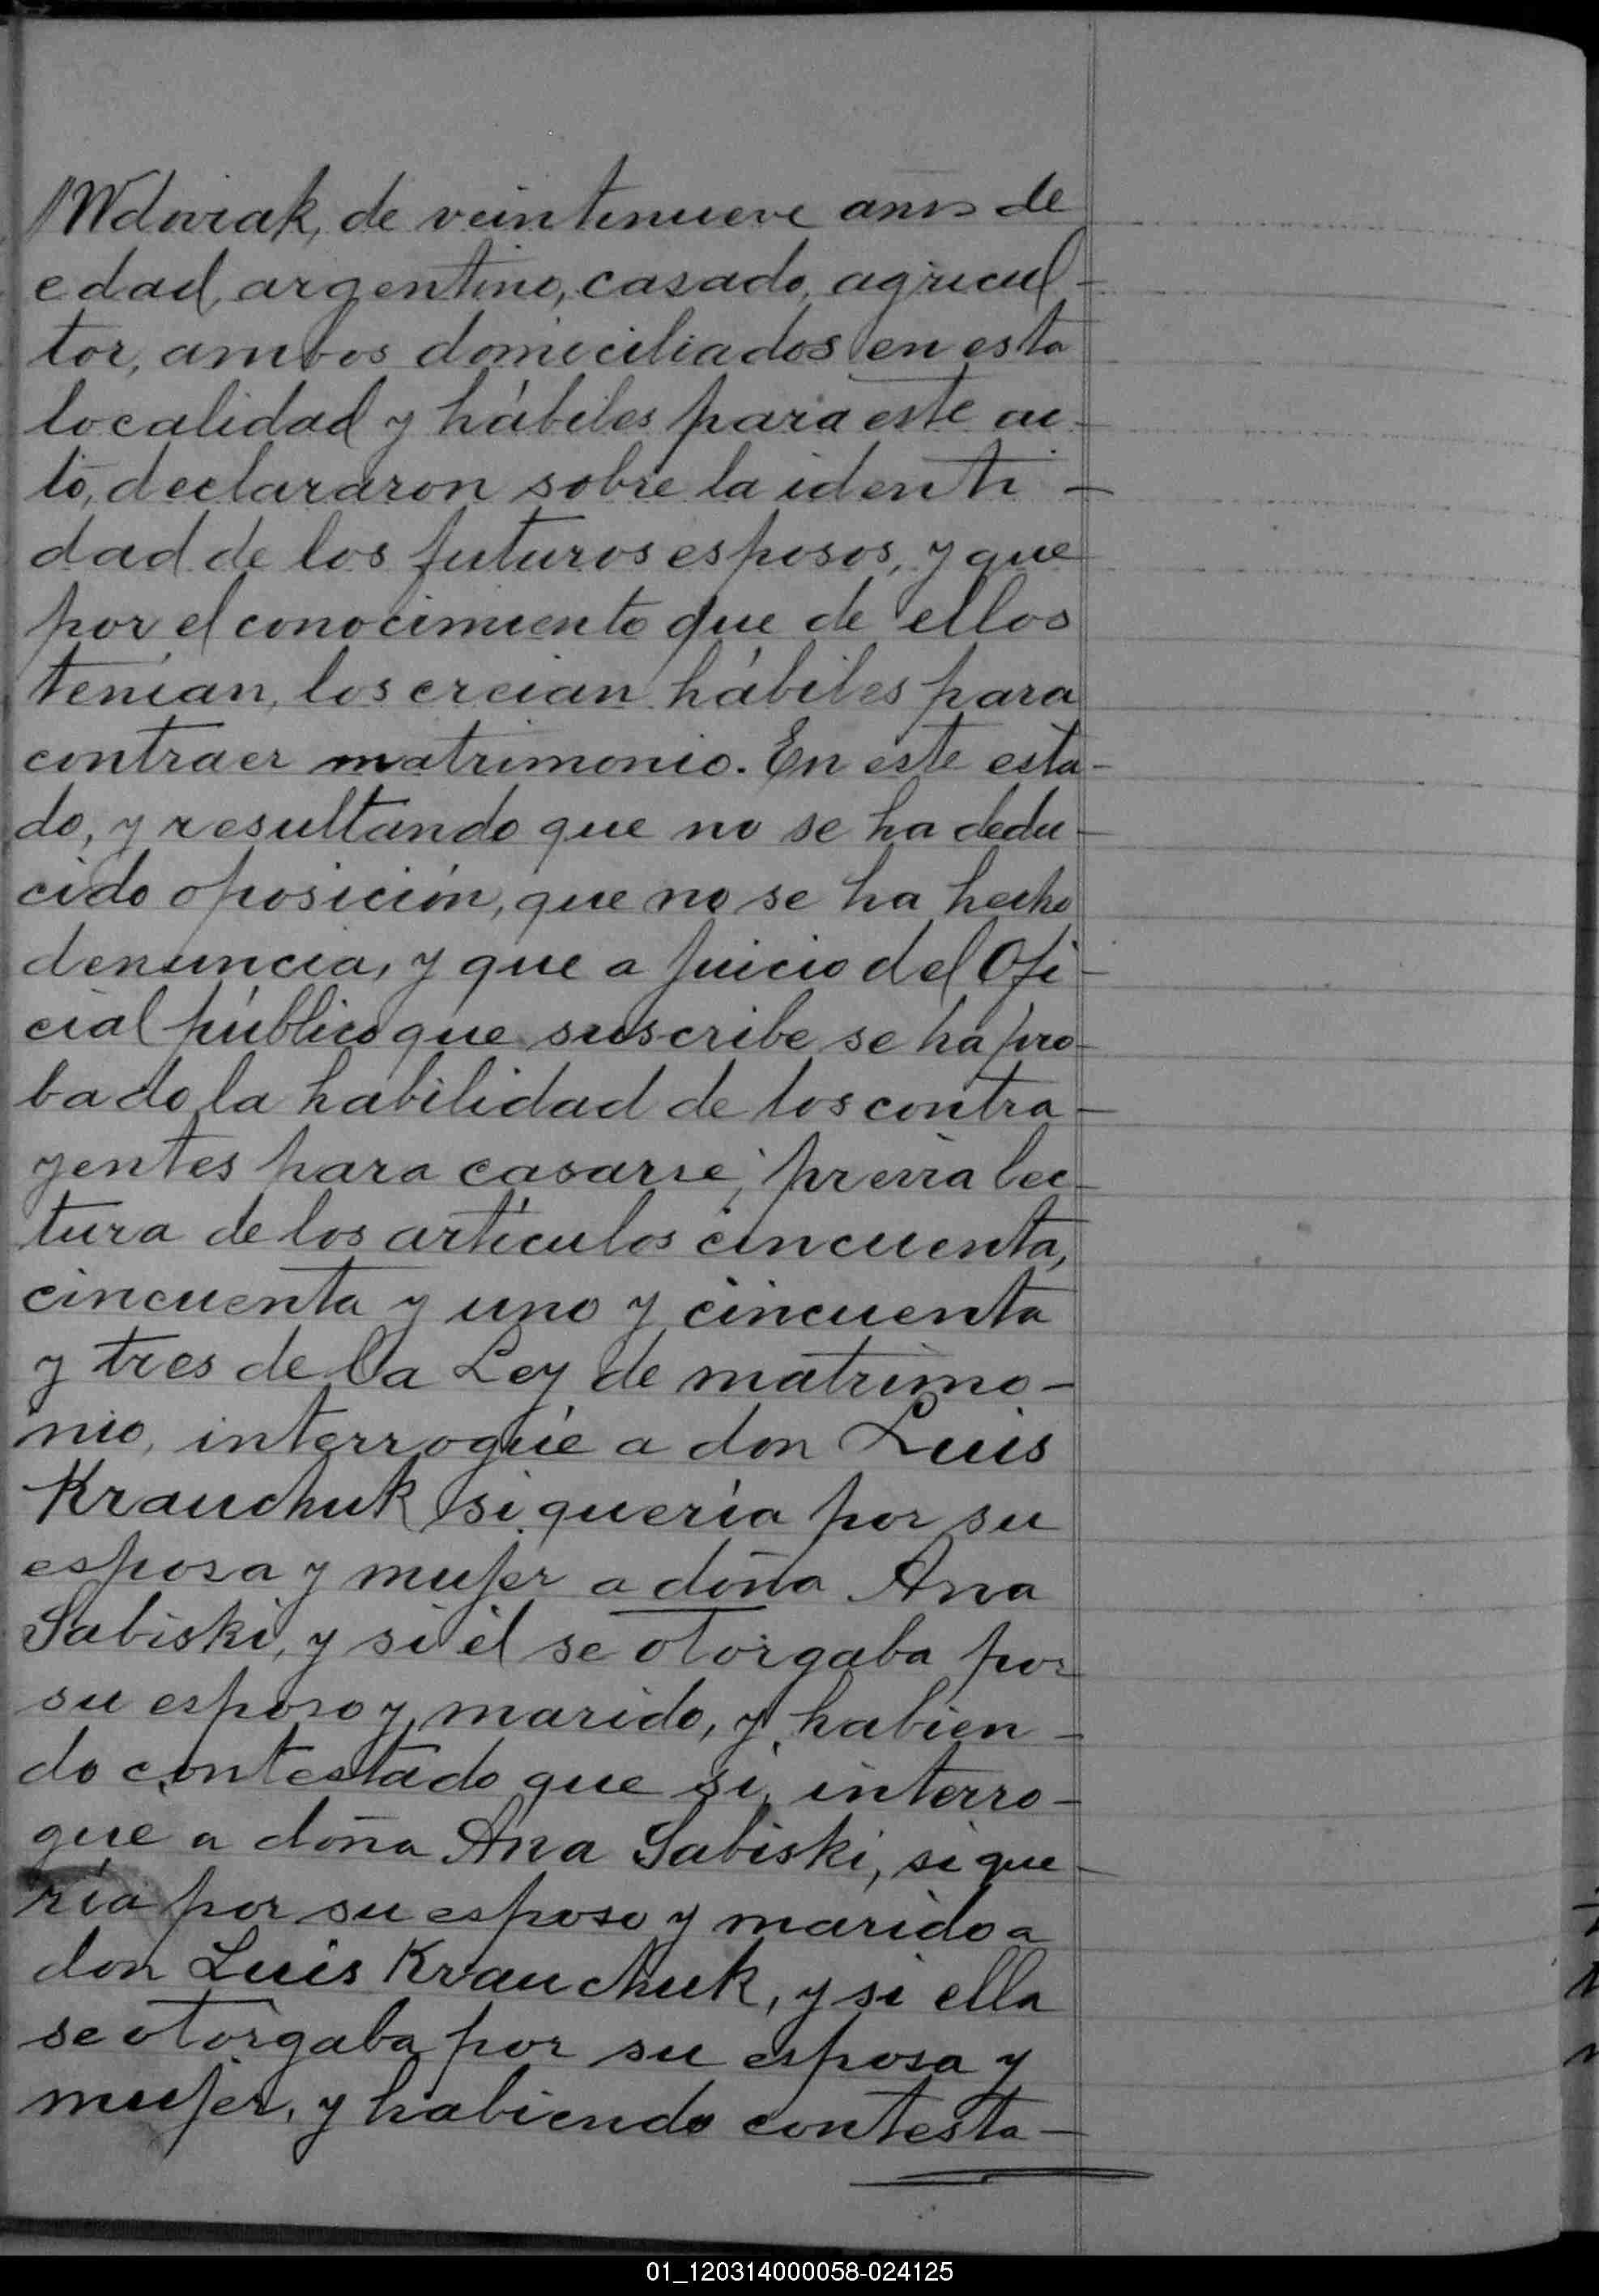 //Wdoviak, de veintinueve años de
edad, argentino, casado, agricul-
tor, ambos domiciliados en esta
localidad y hábiles para este ac-
to, declararon sobre la identi-
dad de los futuros esposos, y que
por el conocimiento que de ellos
tenían, los creían hábiles para
contraer matrimonio. En este esta-
do, y resultando que no se ha dedu-
cido oposición, que no se ha hecho
denuncia, y que a juicio del Ofi-
cial público que suscribe se ha pro-
bado la habilidad de los contra-
yentes para casarse; previa lec-
tura de los artículos cincuenta,
cincuenta y uno y cincuenta
y tres de la Ley de matrimo-
nio, interrogué a don Luis
Krauchuk si quería por su
esposa y mujer a doña Ana
Sabiski, y si él se otorgaba por
su esposo y marido, y habien-
do contestado que sí, interro-
gué a doña Ana Sabiski, si que-
ría por su esposo y marido a
don Luis Krauchuk, y si ella
se otorgaba por su esposa y
mujer, y habiendo contesta-
01_120314000058-024125